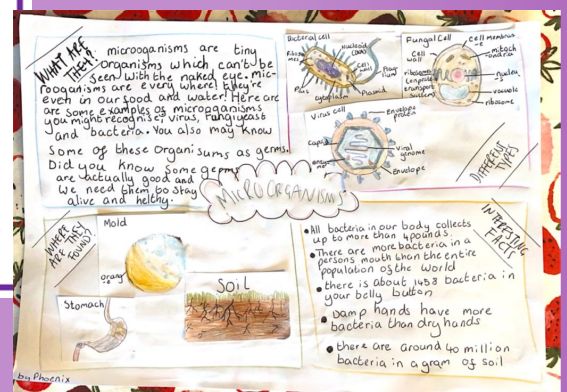 WHAT ARE
THEY?
microoganisms are tiny
Organisms which can't be
seen with the naked eye. mic-
rooganisms are everywhere! they're
even in our food and water! Here are
are some examples of microganisms
you might recognise: virus, fungi, yeast
and bacteria. You also may know
some of these Organisums as germs.
Did you know some germs
are actually good and
we need them to stay
alive and helthy.
Bacteral cell
Nucleoid
(DNA)
Ribso
mes
Cell
wall
Flag-
Pilus
cytoplasm
Plasmid
Fungal Cell
Cell membran
-e
Cell
wall
mitoch
ondria
ribosomes
transport
system
vacuole
ribosome
Virus cell
Envelope
protein
Capsid
Viral
genome
Envelope
DIFFERENT
TYPES
MICROORGANISMS
WHERE
ARE THEY
FOUND?
Mold
orang
-e
Stomach
Soil
INTERESTING
FACTS
All bacteria in our body collects
up to more than 4 pounds.
There are more bacteria in a
persons mouth than the entire
population of the World
there is about 1458 bacteria in
your belly button
Damp hands have more
bacteria than dry hands
there are around 40 million
bacteria in a gram of soil
by Phoenix